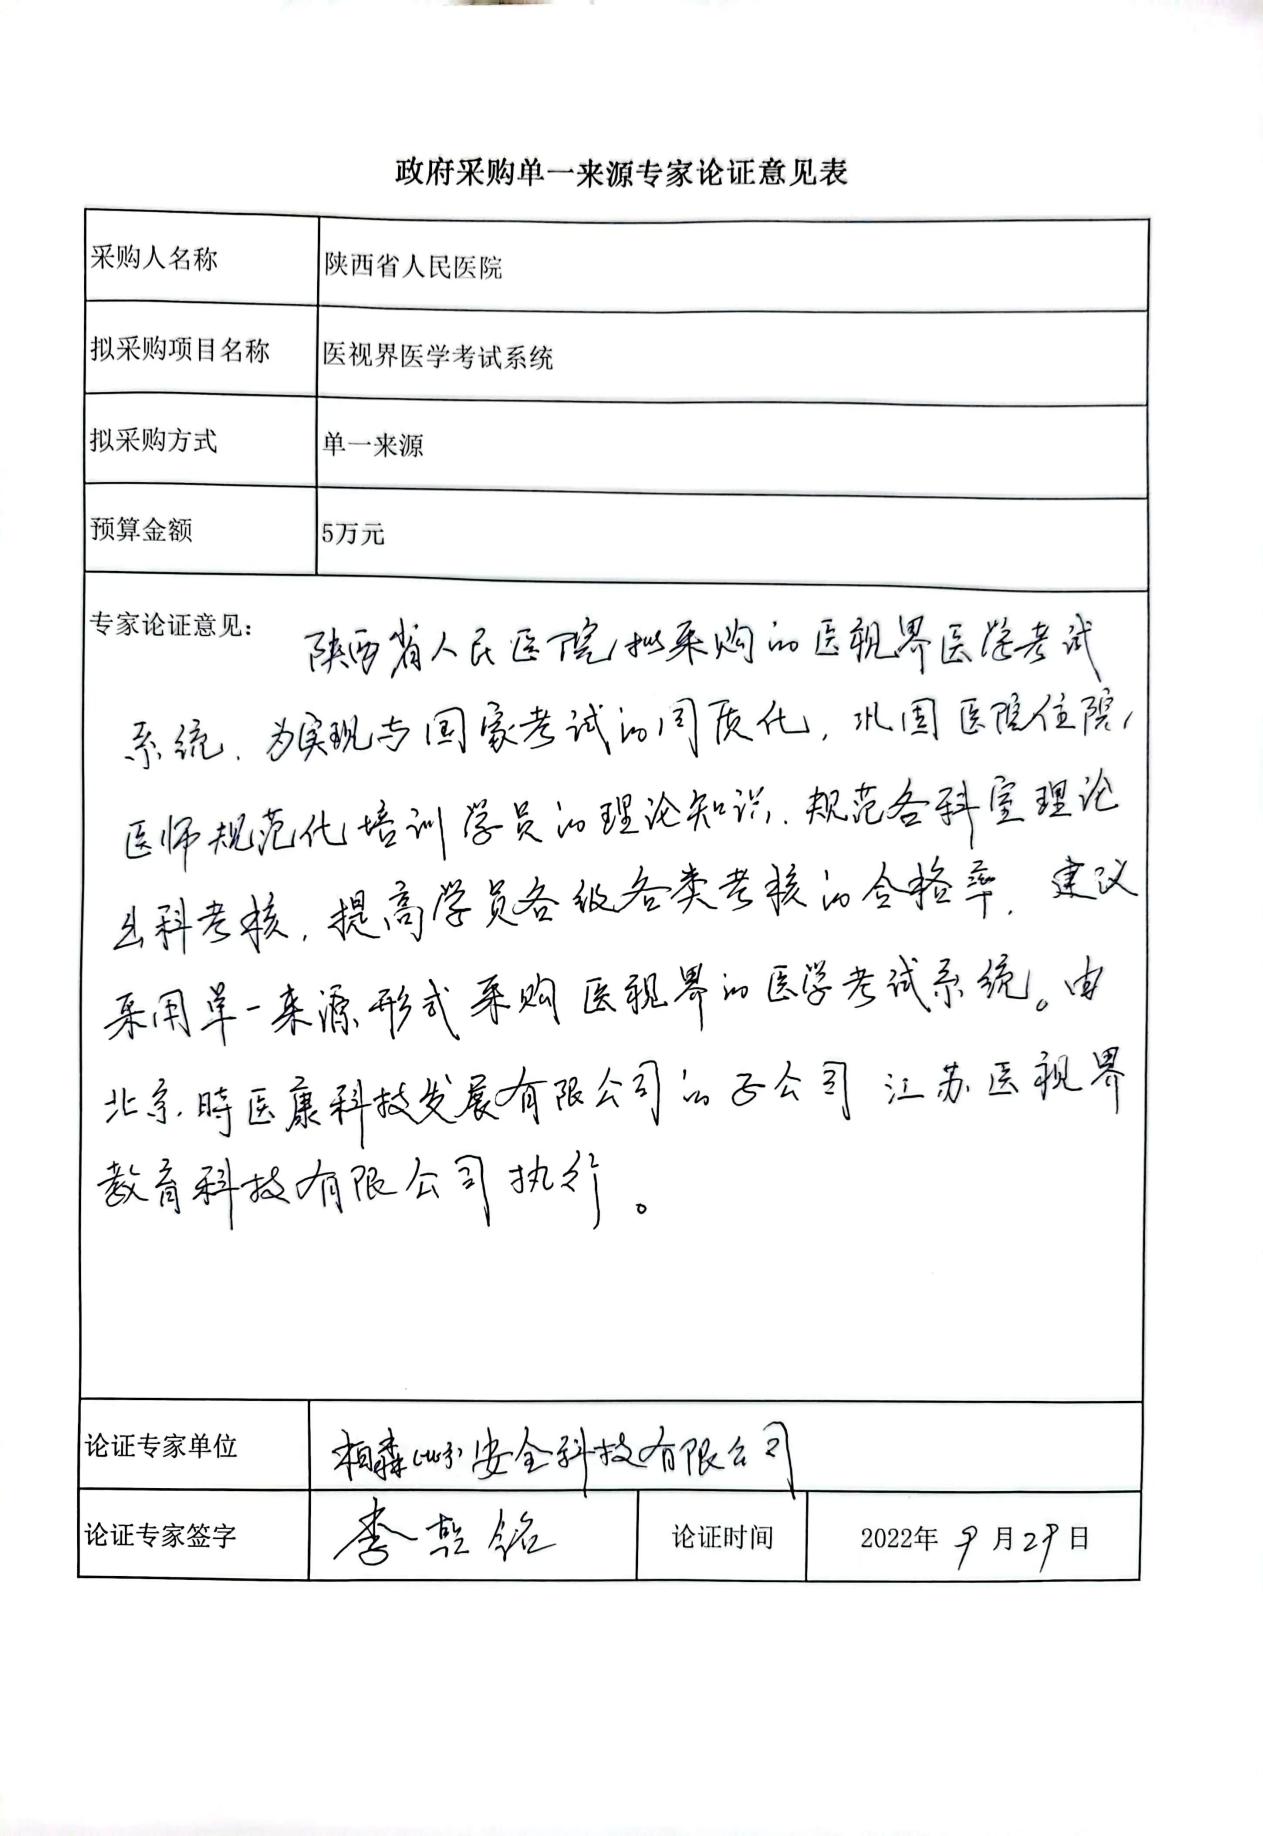 政府采购单一来源专家论证意见表
采购人名称 陕西省人民医院
拟采购项目名称 医视界医学考试系统
拟采购方式 单一来源
预算金额 5万元
专家论证意见： 陕西省人民医院拟采购的医视界医学考试
系统，为实现与国家考试的同质化，巩固医院住院
医师规范化培训学员的理论知识，规范各科室理论
出科考核，提高学员各级各类考核的合格率，建议
采用单一来源形式采购医视界的医学考试系统。由
北京時医康科技发展有限公司的子公司江苏医视界
教育科技有限公司执行。
论证专家单位 柏森(北京)安全科技有限公司
论证专家签字 李 铭 论证时间 2022年9月29日